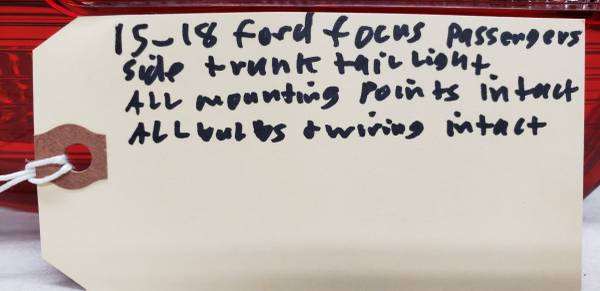 15-18 Ford focus passengers
side trunk tail light
ALL mounting points intact
ALL bulbs + wiring intact